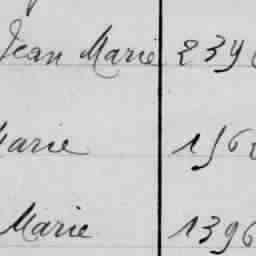 Jean Marie 239
Marie 156
Marie 1396